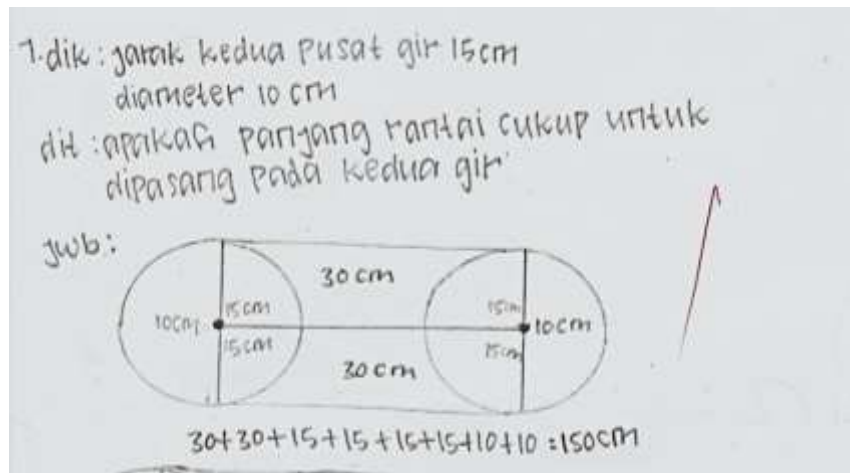 7. dik : jarak kedua pusat gir 15 cm
diameter 10 cm
dit : apakah panjang rantai cukup untuk
dipasang pada kedua gir
jwb :
30 cm
15 cm
15 cm
10 cm
10 cm
15 cm
15 cm
30 cm
30+30+15+15+15+15+10+10 = 150 cm